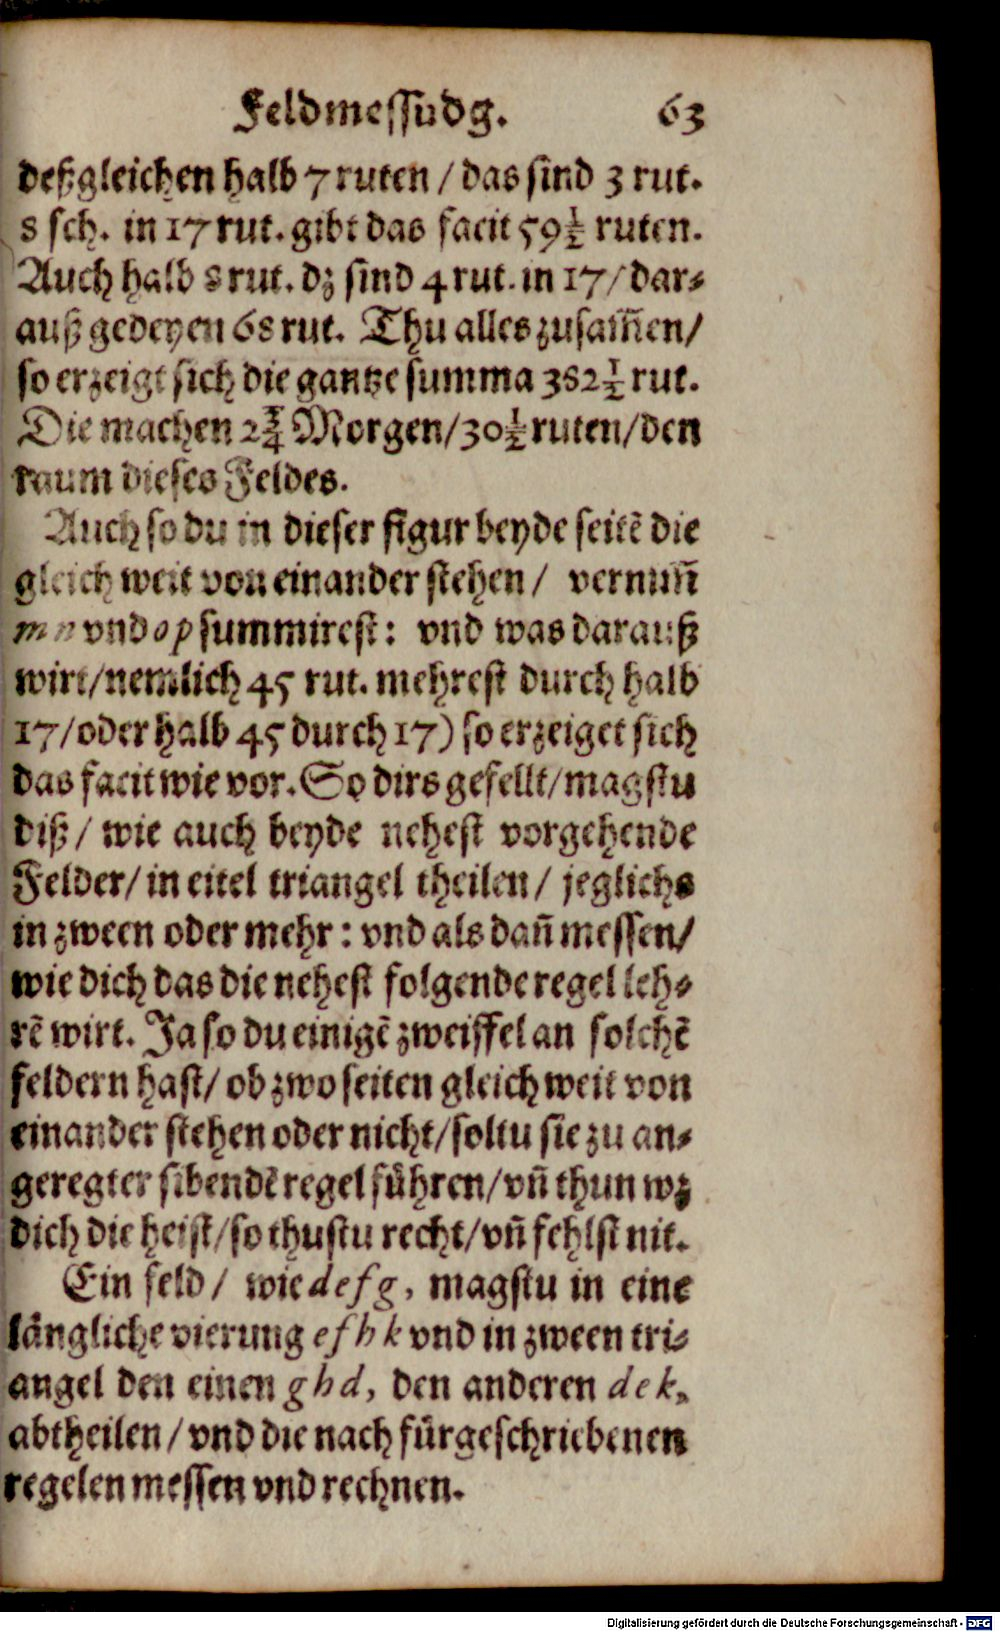 Feldmessūdg. 63
deßgleichen halb 7 ruten / das sind 3 rut.
8 sch. in 17 rut. gibt das facit 59 1/2 ruten.
Auch halb 8 rut. dz sind 4 rut. in 17 / dar⸗
auß gedeyen 68 rut. Thu alles zusam̃en /
so erzeigt sich die gantze summa 382 1/2 rut.
Die machen 2 3/4 Morgen / 30 1/2 ruten / den
raum dieses Feldes.
Auch so du in dieser figur beyde seitē die
gleich weit von einander stehen / vernim̃
m n vnd o p summirest: vnd was darauß
wirt / nemlich 45 rut. mehrest durch halb
17 / oder halb 45 durch 17) so erzeiget sich
das facit wie vor. So dirs gefellt / magstu
diß / wie auch beyde nehest vorgehende
Felder / in eitel triangel theilen / jeglichs
in zween oder mehr: vnd als dañ messen /
wie dich das die nehest folgende regel leh⸗
rē wirt. Ja so du einigē zweiffel an solchē
feldern hast / ob zwo seiten gleich weit von
einander stehen oder nicht / soltu sie zu an⸗
geregter sibendē regel führen / vñ thun wz
dich die heist / so thustu recht / vñ fehlst nit.
Ein feld / wie d e f g, magstu in eine
längliche vierung e f h k vnd in zween tri⸗
angel den einen g h d, den anderen d e k,
abtheilen / vnd die nach fürgeschriebenen
regelen messen vnd rechnen.
Digitalisierung gefördert durch die Deutsche Forschungsgemeinschaft - DFG